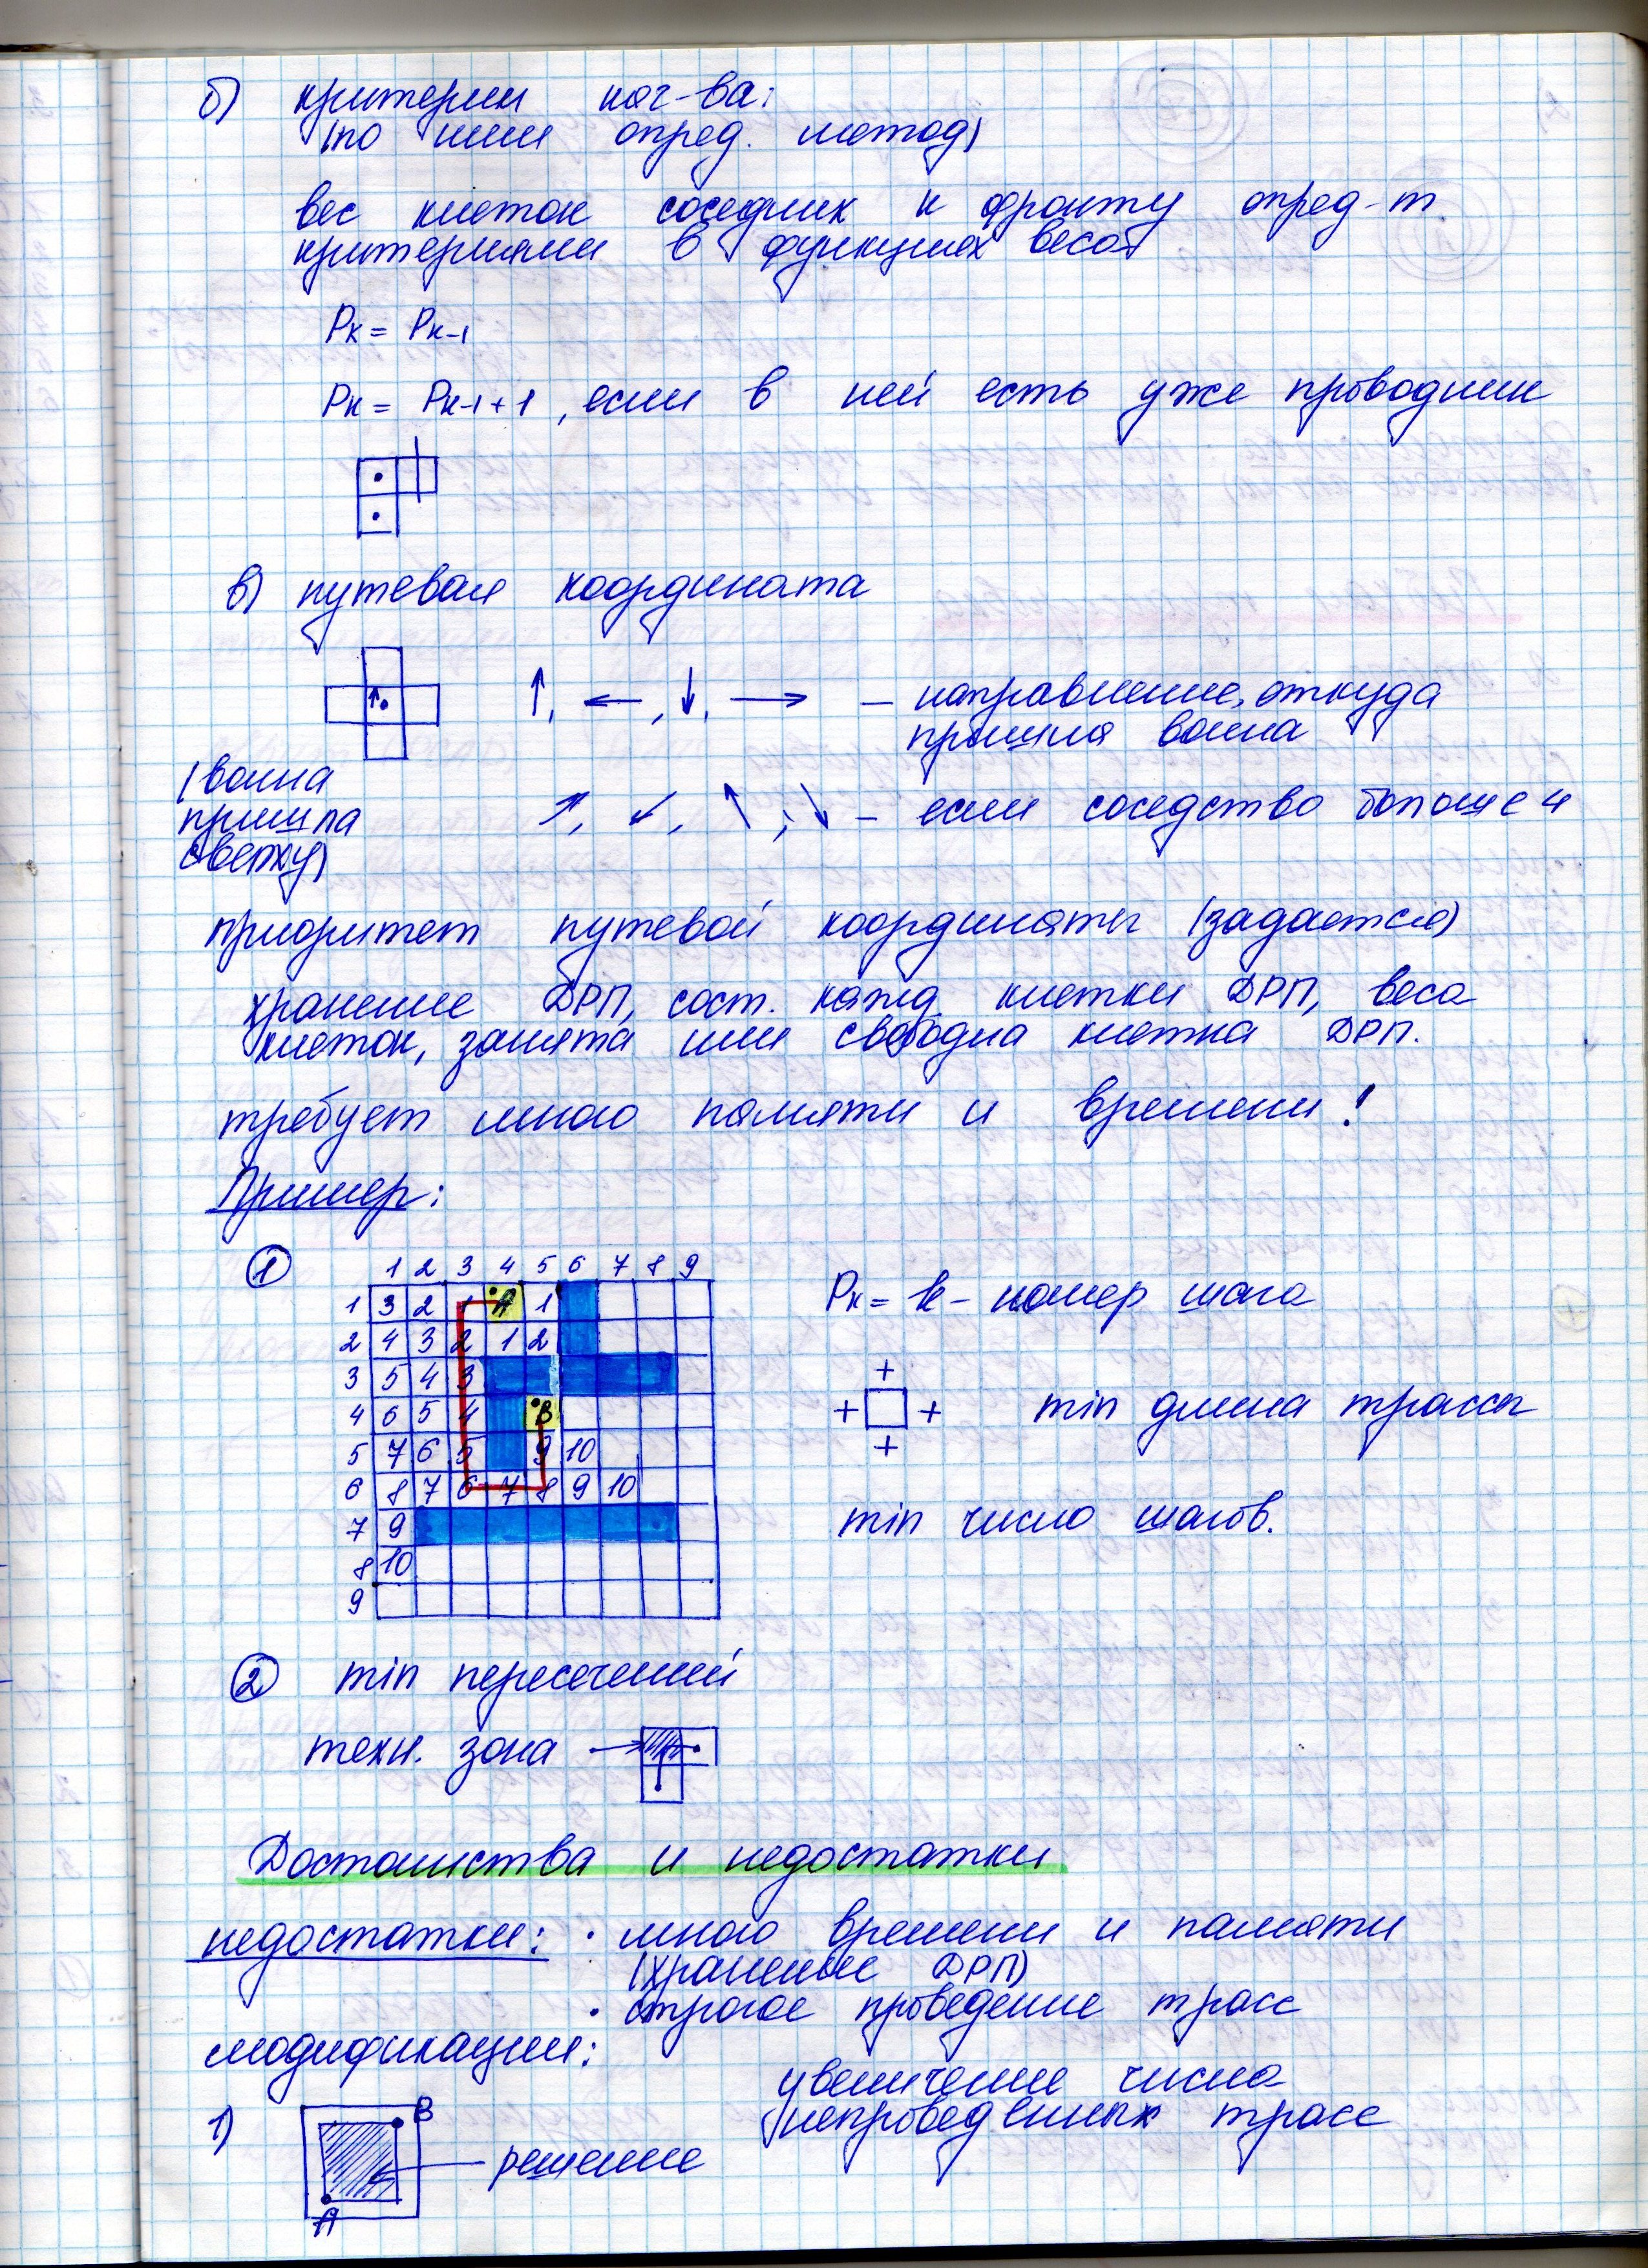 б) критерии кач-ва:
(по ним опред. метод)
вес клеток соседних к фронту опред-т
критериями в функциях веса
Pк = Pк-1
Pк = Pк-1 + 1, если в ней есть уже проводник
в) путевая координата
↑, ←, ↓, → – направление, откуда
пришла волна
(волна
пришла
сверху)
↗, ↙, ↖, ↘ – если соседство больше 4
приоритет путевой координаты (задается)
хранение ДРП, сост. кажд клетки ДРП, веса
клеток, занята или свободна клетка ДРП.
требует много памяти и времени!
Пример:
1
1 2 3 4 5 6 7 8 9
1 3 2 1 A 1
2 4 3 2 1 2
3 5 4 3
4 6 5 4 B
5 7 6 5 9 10
6 8 7 6 7 8 9 10
7 9
8 10
9
Pк = k – номер шага
+
+ +
+
min длина трассы
min число шагов.
2 min пересечений
техн. зона →
Достоинства и недостатки
недостатки: · много времени и памяти
(хранение ДРП)
· строгое проведение трасс
модификации:
увеличение числа
непроведенных трасс
1)
B
решение
A